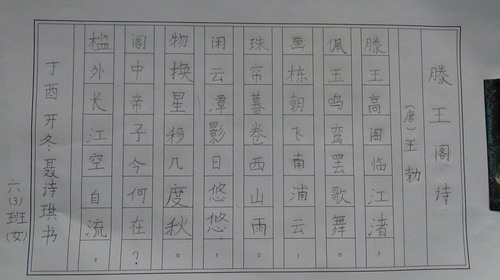 滕王阁诗
(唐)王勃
滕王高阁临江渚，
佩玉鸣鸾罢歌舞。
画栋朝飞南浦云，
珠帘暮卷西山雨。
闲云潭影日悠悠，
物换星移几度秋。
阁中帝子今何在？
槛外长江空自流。
丁酉开冬聂诗琪书
六(3)班(女)